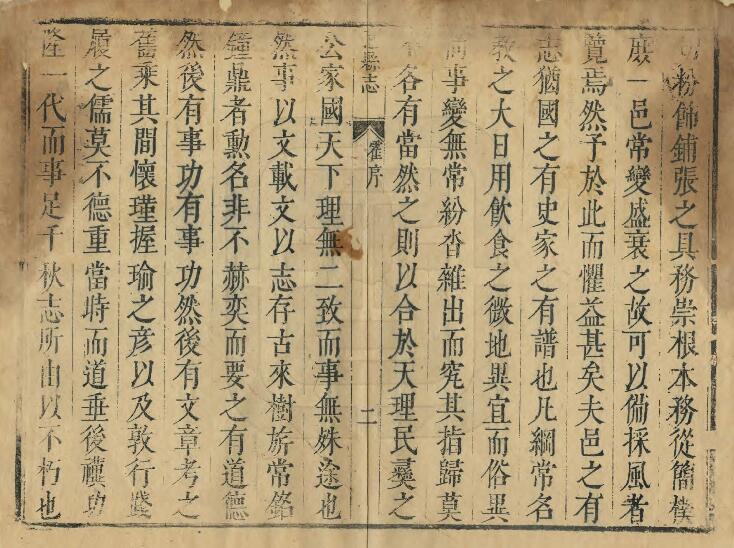 粉飾鋪張之具務崇根本務從簡樸
庶一邑常變盛衰之故可以俻採風者
覽焉然予於此而懼益甚矣夫邑之有
志猶國之有史家之有譜也凡綱常名
教之大日用飲食之微地異宜而俗異
尚事變無常紛沓雜出而究其指歸莫
各有當然之則以合於天理民彞之
縣志
霍序
二
公家國天下理無二致而事無姝途也
然事以文載文以志存古來樹旂常銘
鐘鼎者勲名非不赫奕而要之有道德
然後有事功有事功然後有文章考之
舊乘其間懷瑾握瑜之彦以及敦行踐
履之儒莫不德重當時而道垂後禩功
隆一代而事足千秋志所由以不朽也